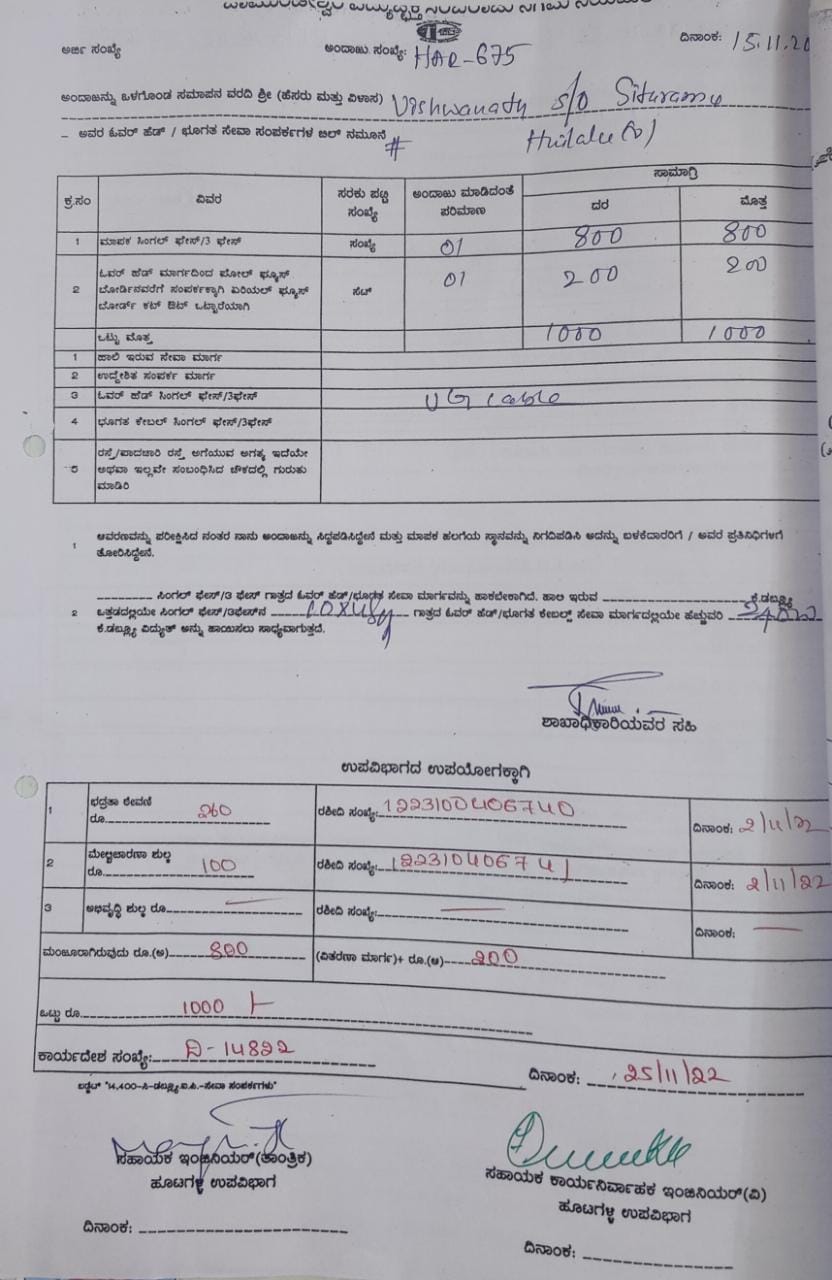 ಅರ್ಜಿ ಸಂಖ್ಯೆ ಅಂದಾಜು ಸಂಖ್ಯೆ: HAR-675 ದಿನಾಂಕ: 15.11.20
ಅಂದಾಜನ್ನು ಒಳಗೊಂಡ ಸಮಾಪನ ವರದಿ ಶ್ರೀ (ಹೆಸರು ಮತ್ತು ವಿಳಾಸ) Vishwanath s/o Siturama
– ಅವರ ಓವರ್ ಹೆಡ್ / ಭೂಗತ ಸೇವಾ ಸಂಪರ್ಕಗಳ ಬಿಲ್ ನಮೂನೆ # (v)
ಕ್ರ.ಸಂ ವಿವರ ಸರಕು ಪಟ್ಟಿ ಸಂಖ್ಯೆ ಅಂದಾಜು ಮಾಡಿದಂತೆ ಪರಿಮಾಣ ಸಾಮಾಗ್ರಿ
ದರ ಮೊತ್ತ
1 ಮಾಪಕ ಸಿಂಗಲ್ ಫೇಸ್/3 ಫೇಸ್ ಸಂಖ್ಯೆ 01 800 800
2 ಓವರ್ ಹೆಡ್ ಮಾರ್ಗದಿಂದ ಪೋಲ್ ಫ್ಯೂಸ್
ಬೋರ್ಡಿನವರೆಗೆ ಸಂಪರ್ಕಕ್ಕಾಗಿ ಏರಿಯಲ್ ಫ್ಯೂಸ್
ಬೋರ್ಡ್ ಕಟ್ ಔಟ್ ಒಟ್ಟಾರೆಯಾಗಿ ಸೆಟ್ 01 200 200
ಒಟ್ಟು ಮೊತ್ತ 1000 1000
1 ಹಾಲಿ ಇರುವ ಸೇವಾ ಮಾರ್ಗ
2 ಉದ್ದೇಶಿತ ಸಂಪರ್ಕ ಮಾರ್ಗ
3 ಓವರ್ ಹೆಡ್ ಸಿಂಗಲ್ ಫೇಸ್/3ಫೇಸ್ UG cable
4 ಭೂಗತ ಕೇಬಲ್ ಸಿಂಗಲ್ ಫೇಸ್/3ಫೇಸ್
5 ರಸ್ತೆ/ಪಾದಚಾರಿ ರಸ್ತೆ ಅಗೆಯುವ ಅಗತ್ಯ ಇದೆಯೇ
ಅಥವಾ ಇಲ್ಲವೇ ಸಂಬಂಧಿಸಿದ ಚೌಕದಲ್ಲಿ ಗುರುತು
ಮಾಡಿರಿ
1 ಆವರಣವನ್ನು ಪರೀಕ್ಷಿಸಿದ ನಂತರ ನಾನು ಅಂದಾಜನ್ನು ಸಿದ್ಧಪಡಿಸಿದ್ದೇನೆ ಮತ್ತು ಮಾಪಕ ಹಲಗೆಯ ಸ್ಥಾನವನ್ನು ನಿಗದಿಪಡಿಸಿ ಅದನ್ನು ಬಳಕೆದಾರರಿಗೆ / ಅವರ ಪ್ರತಿನಿಧಿಗಳಿಗೆ
ತೋರಿಸಿದ್ದೇನೆ.
ಸಿಂಗಲ್ ಫೇಸ್/3 ಫೇಸ್ ಗಾತ್ರದ ಓವರ್ ಹೆಡ್/ಭೂಗತ ಸೇವಾ ಮಾರ್ಗವನ್ನು ಹಾಕಬೇಕಾಗಿದೆ. ಹಾಲಿ ಇರುವ ಕೆ.ಡಬ್ಲ್ಯೂ
2 ಒತ್ತಡದಲ್ಲಿಯೇ ಸಿಂಗಲ್ ಫೇಸ್/3ಫೇಸ್‌ನ ಗಾತ್ರದ ಓವರ್ ಹೆಡ್/ಭೂಗತ ಕೇಬಲ್ಸ್ ಸೇವಾ ಮಾರ್ಗದಲ್ಲಿಯೇ ಹೆಚ್ಚುವರಿ
ಕೆ.ಡಬ್ಲ್ಯೂ ವಿದ್ಯುತ್ ಅನ್ನು ಹಾಯಿಸಲು ಸಾಧ್ಯವಾಗುತ್ತದೆ.
ಶಾಖಾಧಿಕಾರಿಯವರ ಸಹಿ
ಉಪವಿಭಾಗದ ಉಪಯೋಗಕ್ಕಾಗಿ
1 ಭದ್ರತಾ ಠೇವಣಿ
ರೂ. 260 ರಶೀದಿ ಸಂಖ್ಯೆ: 122310040674 0 ದಿನಾಂಕ: 2/11/22
2 ಮೇಲ್ವಿಚಾರಣಾ ಶುಲ್ಕ
ರೂ. 100 ರಶೀದಿ ಸಂಖ್ಯೆ: 122310406741 ದಿನಾಂಕ: 2/11/22
3 ಅಭಿವೃದ್ಧಿ ಶುಲ್ಕ ರೂ. ರಶೀದಿ ಸಂಖ್ಯೆ: ದಿನಾಂಕ:
ಮಂಜೂರಾಗಿರುವುದು ರೂ.(ಅ) 800 (ವಿತರಣಾ ಮಾರ್ಗ)+ ರೂ.(ಆ) 200
ಒಟ್ಟು ರೂ. 1000
ಕಾರ್ಯದೇಶ ಸಂಖ್ಯೆ: D-14822 ದಿನಾಂಕ: 25/11/22
ಬಡ್ಜೆಟ್ "14,400-ಸಿ-ಡಬ್ಲ್ಯೂ.ಐ.ಪಿ.-ಸೇವಾ ಸಂಪರ್ಕಗಳು"
ಸಹಾಯಕ ಇಂಜಿನಿಯರ್(ತಾಂತ್ರಿಕ) ಸಹಾಯಕ ಕಾರ್ಯನಿರ್ವಾಹಕ ಇಂಜಿನಿಯರ್(ವಿ)
ಹೂಟಗಳ್ಳಿ ಉಪವಿಭಾಗ ಹೂಟಗಳ್ಳಿ ಉಪವಿಭಾಗ
ದಿನಾಂಕ: ದಿನಾಂಕ: